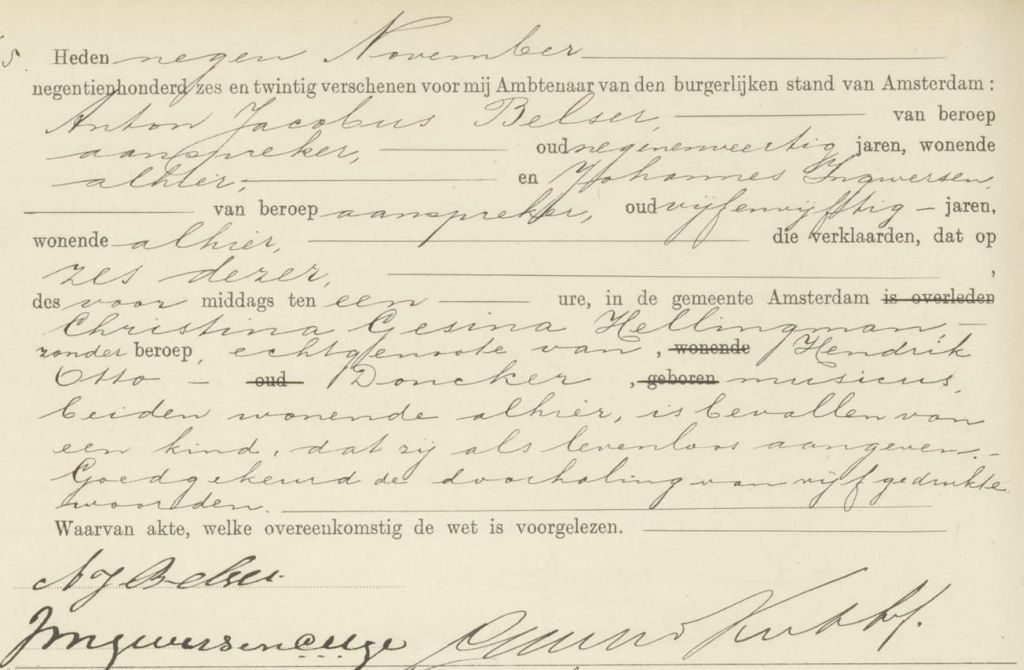 Heden negen November
negentienhonderd zes en twintig verschenen voor mij Ambtenaar van den burgerlijken stand van Amsterdam :
Anton Jacobus Belser, van beroep
aanspreker, oud negenenveertig jaren, wonende
alhier, en Johannes Ingwersen,
van beroep aanspreker, oud vijfenvijftig jaren,
wonende alhier, die verklaarden, dat op
zes dezer, ,
des voor middags ten een ure, in de gemeente Amsterdam is overleden
Christina Gesina Hellingman,
zonder beroep, echtgenoote van , wonende Hendrik
Otto oud Doncker , geboren musicus,
beiden wonende alhier, is bevallen van
een kind, dat zij als levenloos aangeven.
Goedgekeurd de doorhaling van vijf gedrukte
woorden.
Waarvan akte, welke overeenkomstig de wet is voorgelezen.
A J Belser
J Ingwersen